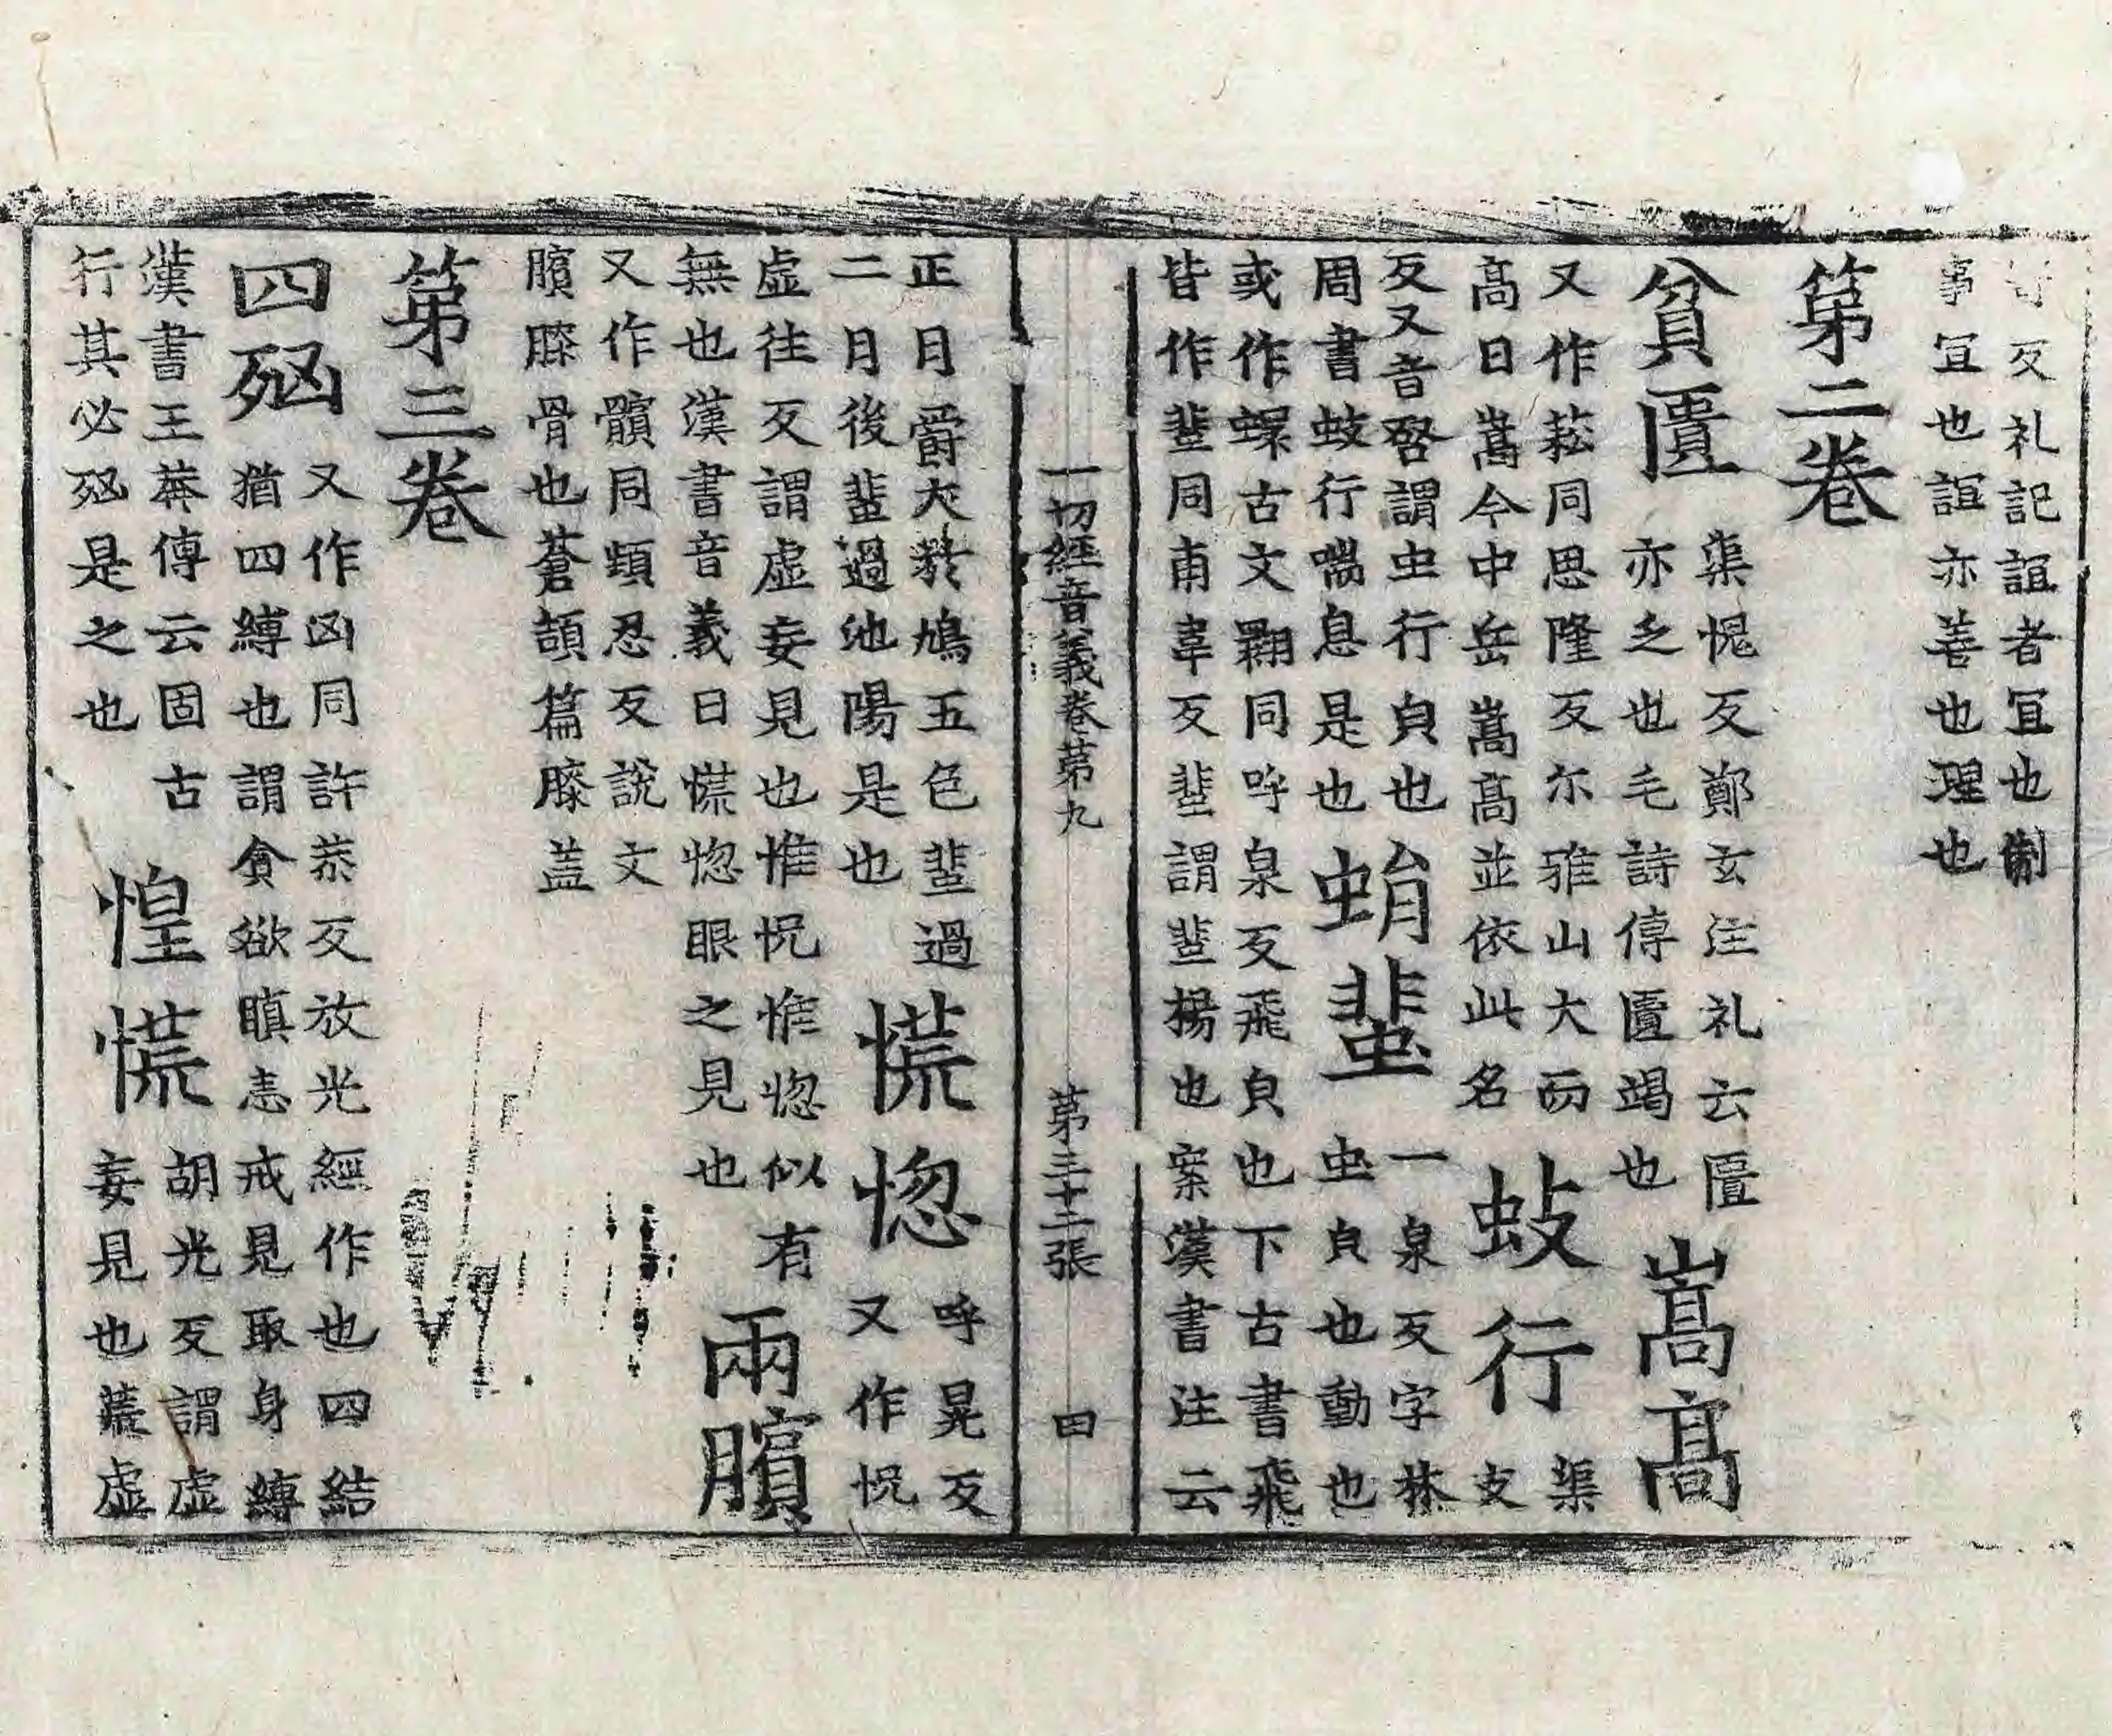 反礼記誼者冝也制
事冝也誼亦善也理也
第二卷
貧匱 渠愧反鄭玄注礼云匱
亦乏也毛詩傳匱竭也 嵩髙
又作菘同思隆反尔雅山大而
髙曰嵩今中岳嵩髙並依此名 蚑行 渠支
反又音啓謂虫行皃也
周書蚑行喘息是也 蜎蜚 一泉反字林
虫皃也動也
或作蠉古文翾同呼泉反飛皃也下古書飛
皆作蜚同甫韋反蜚謂蜚揚也案漢書注云
一切經音義卷第九 第三十二張 田
正月爵大於鳩五色蜚過
二月後蜚過池陽是也 慌惚 呼晃反
又作怳
虛往反謂虛妄見也惟怳惟惚似有
無也漢書音義曰慌惚眼之見也 兩臏
又作髕同蠙忍反說文
臏膝骨也蒼頡篇膝蓋
第三卷
四㓙 又作凶同許恭反放光經作也四結
猶四縛也謂貪欲瞋恚戒見取身縛
漢書王莽傳云固古
行其必㓙是之也 惶慌 胡光反謂虛
妄見也慌虛